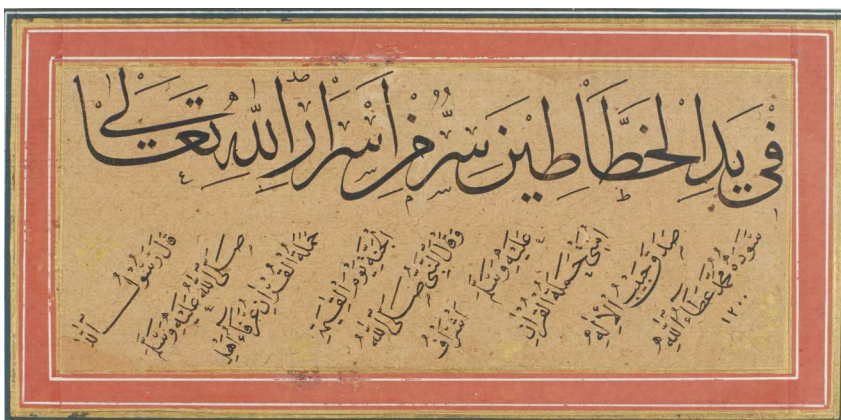 في يد الخطاطين سر من أسرار الله تعالى
قال رسول الله
صلى الله عليه وسلم
حملة القرآن عرفاء اهل
الجنة يوم القيمة
وقال النبي صلى الله
عليه وسلم
اشراف
امتي حملة القرآن
صدق حبيب الاله
سوده محمد عطاء الله
١٢٠٠